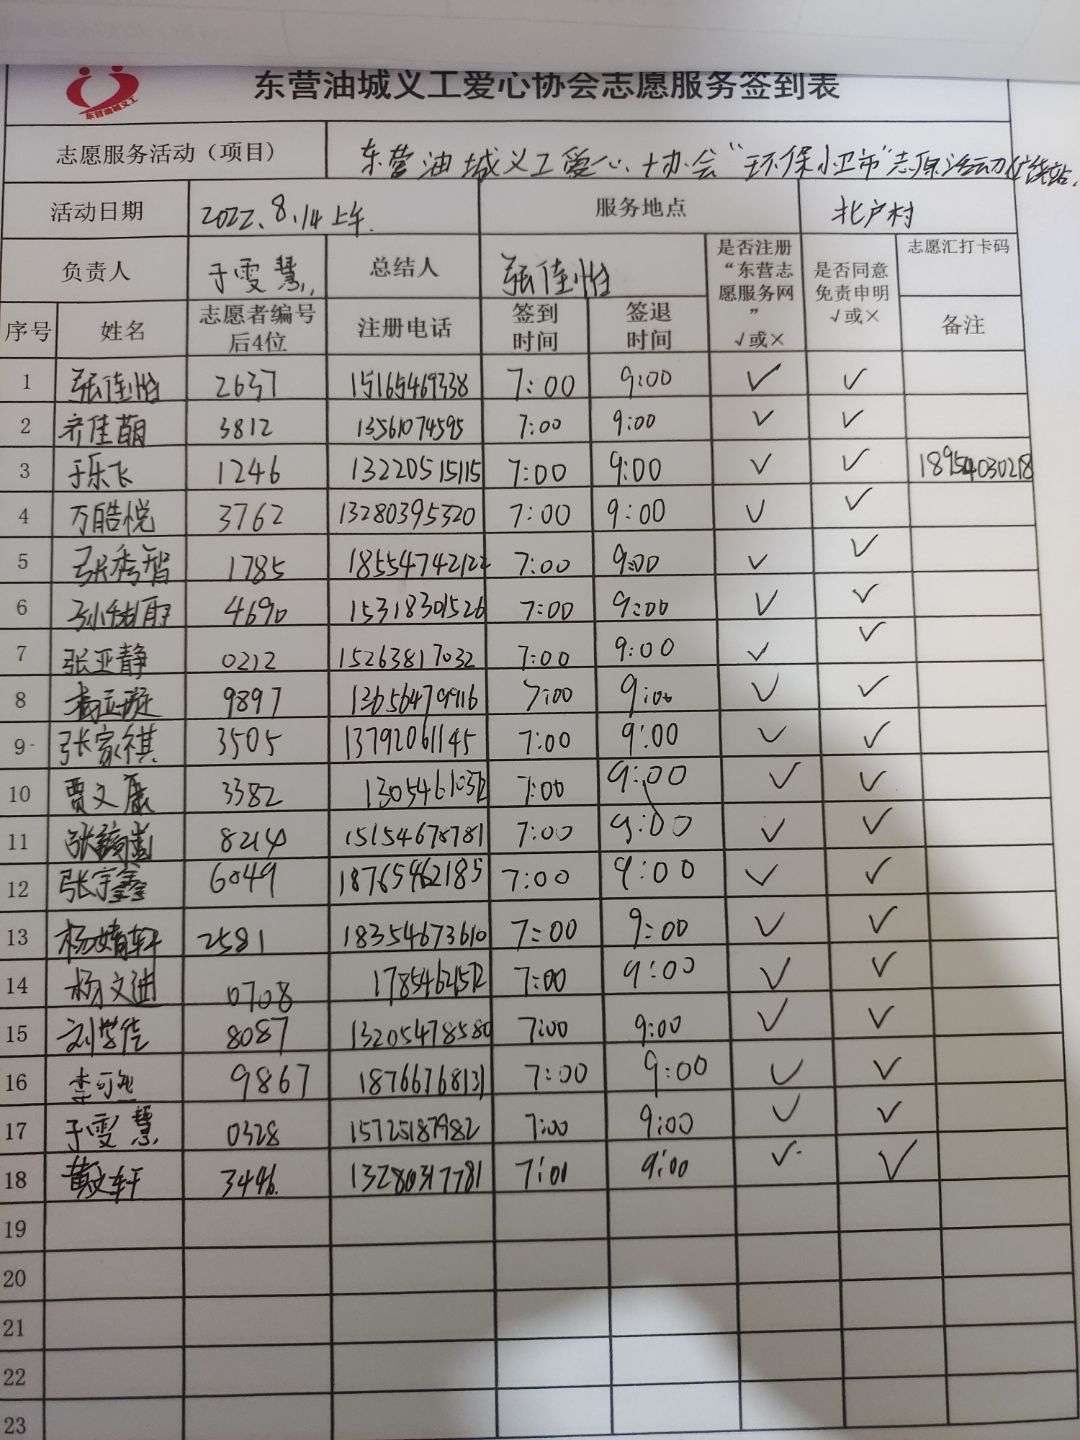 东营油城义工
东营油城义工爱心协会志愿服务签到表
志愿服务活动（项目） 东营油城义工爱心协会“环保小卫士”志愿活动
活动日期 2022.8.14上午. 服务地点 北户村
负责人 于雯慧 总结人 张佳怡 是否注册“东营志愿服务网”√或× 是否同意免责申明√或× 志愿汇打卡码
序号 姓名 志愿者编号后4位 注册电话 签到时间 签退时间 备注
1 张佳怡 2637 15165469338 7:00 9:00 √ √
2 齐佳萌 3812 13561074595 7:00 9:00 √ √
3 于乐飞 1246 13220515115 7:00 9:00 √ √ 18954030218
4 万皓悦 3762 13280395320 7:00 9:00 √ √
5 张秀智 1785 18554742122 7:00 9:00 √ √
6 4690 15318301526 7:00 9:00 √ √
7 张亚静 0212 15263817032 7:00 9:00 √ √
8 9897 7:00 9:00 √ √
9 张家祺 3505 13792061145 7:00 9:00 √ √
10 贾文康 3382 7:00 9:00 √ √
11 8214 15154678781 7:00 9:00 √ √
12 张宇鑫 6049 18765962185 7:00 9:00 √ √
13 杨婧轩 2581 18354673610 7:00 9:00 √ √
14 杨文迪 0708 7:00 9:00 √ √
15 刘学佳 8087 13205478580 7:00 9:00 √ √
16 李可 9867 18766768131 7:00 9:00 √ √
17 于雯慧 0328 15725187982 7:00 9:00 √ √
18 黄文轩 3446. 13280317781 7:00 9:00 √ √
19
20
21
22
23